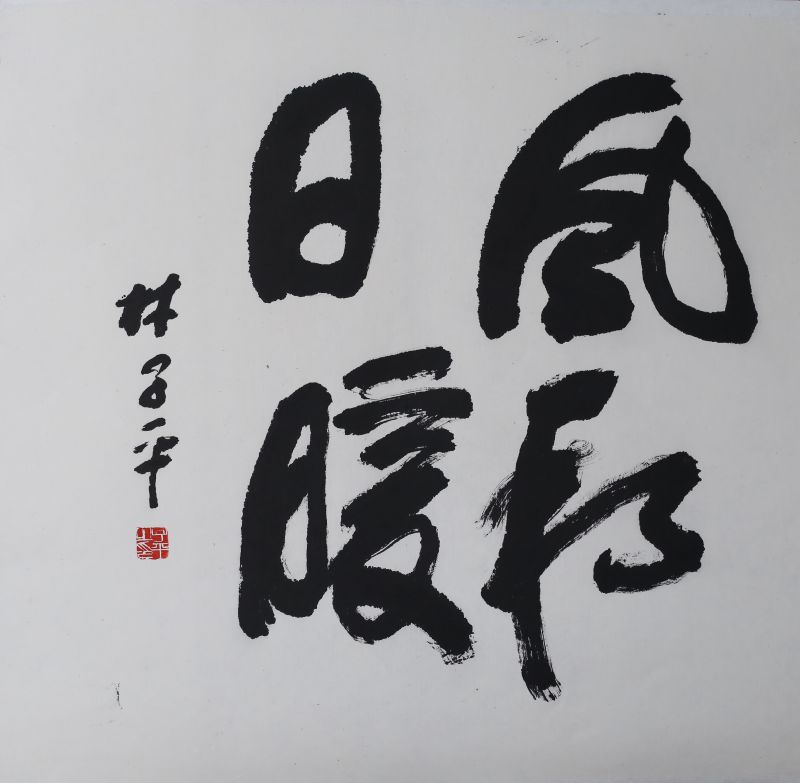 風和
日暖
林子平